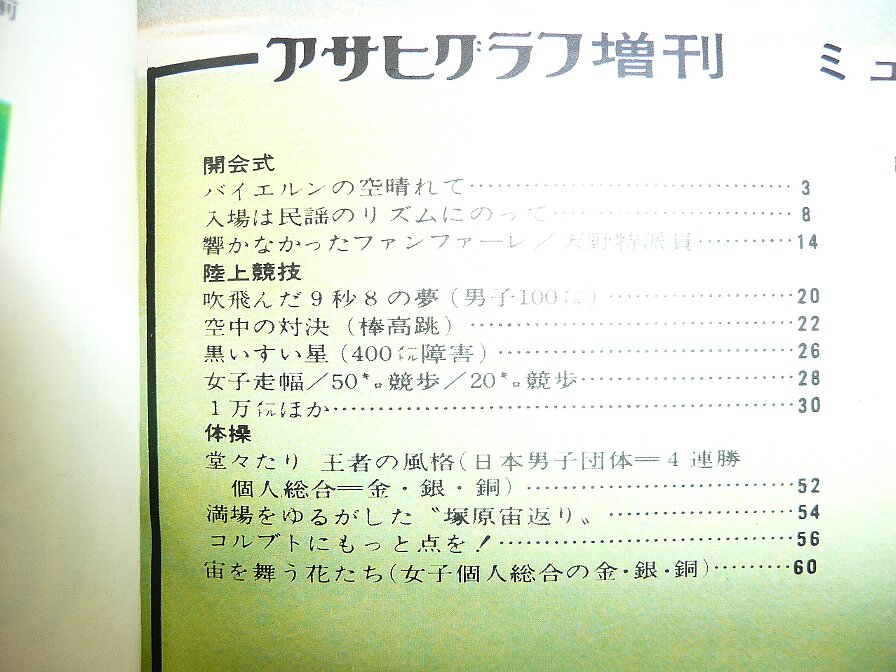 前
アサヒグラフ増刊 ミュ
開会式
バイエルンの空晴れて……………………………3
入場は民謡のリズムにのって……………………8
響かなかったファンファーレ／天野特派員…………14
陸上競技
吹飛んだ9秒8の夢（男子100㍍）…………………20
空中の対決（棒高跳）……………………………22
黒いすい星（400㍍障害）…………………………26
女子走幅／50㌔競歩／20㌔競歩…………………28
1万㍍ほか…………………………………………30
体操
堂々たり 王者の風格（日本男子団体＝4連勝
個人総合＝金・銀・銅）…………………………52
満場をゆるがした〝塚原宙返り〟…………………54
コルブトにもっと点を！……………………………56
宙を舞う花たち（女子個人総合の金・銀・銅）………60